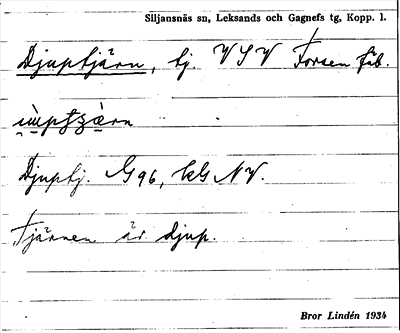 Siljansnäs sn, Leksands och Gagnefs tg, Kopp. l.
Djuptjärn, tj. VSV Forsen fäb.
Djuptj. G 96, kG NV.
Tjärnen är djup.
Bror Lindén 1934